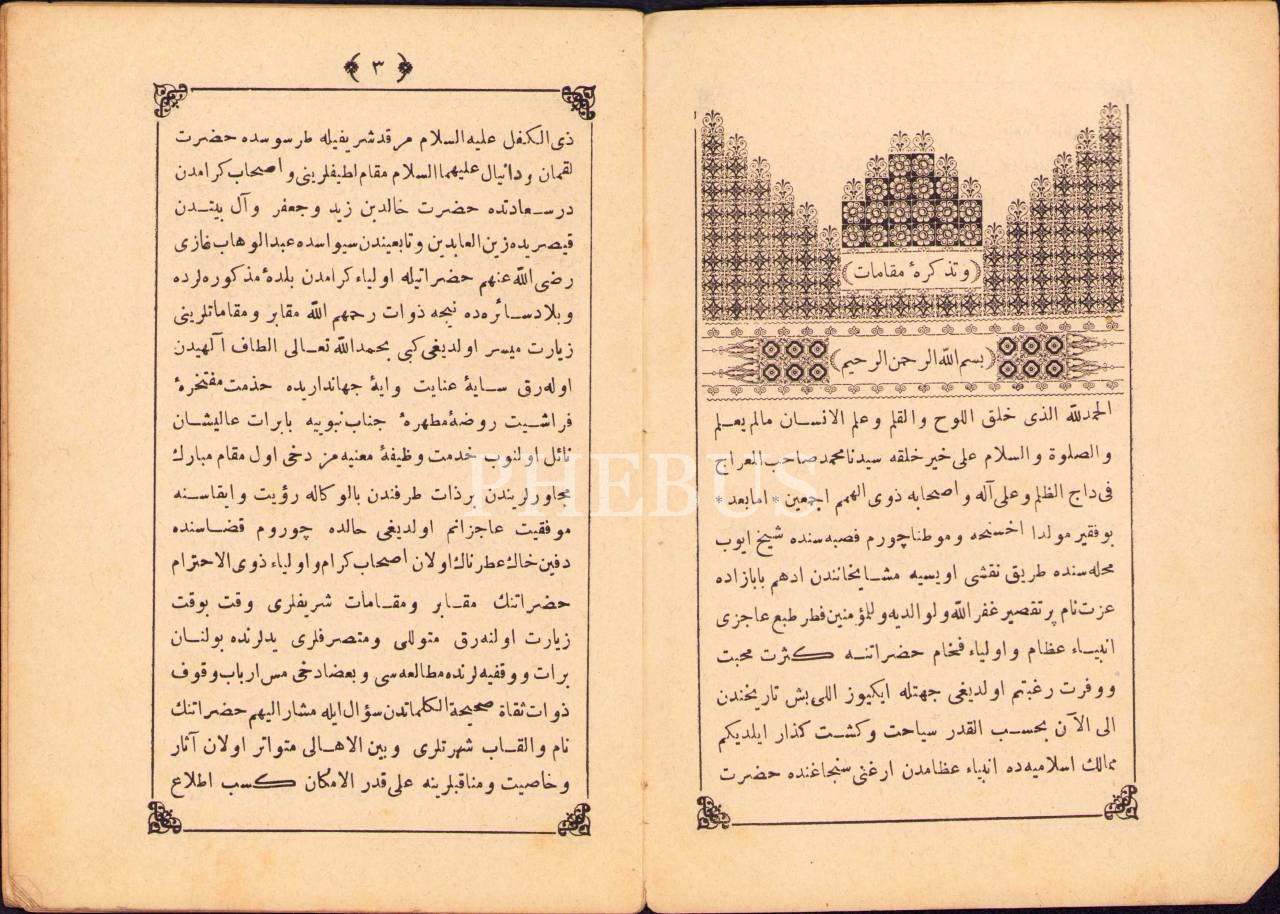 ﴿ وتذكرهٔ مقامات ﴾
﴿ بسم الله الرحمن الرحيم ﴾
الحمدلله الذى خلق اللوح والقلم وعلم الانسان مالم يعلم
والصلوة والسلام على خير خلقه سيدنا محمد صاحب المعراج
فى داج الظلم وعلى آله واصحابه ذوى الهمم اجمعين * امابعد *
بو فقير مولدا اخسخه وموطنا چورم قصبه سنده شيخ ايوب
محله سنده طريق نقشى اويسيه مشايخانندن ادهم بابازاده
عزت نام پر تقصير غفر الله ولوالديه وللمؤمنين فطر طبع عاجزى
انبياء عظام واولياء فخام حضراتنه كثرت محبت
ووفرت رغبتم اولديغى جهتله ايكيوز اللى بش تاريخندن
الى الآن بحسب القدر سياحت وكشت كذار ايلديكم
ممالك اسلاميه ده انبياء عظامدن ارغنى سنجاغنده حضرت
﴿ ٣ ﴾
ذى الكفل عليه السلام مرقد شريفيله طرسوسده حضرت
لقمان ودانيال عليهما السلام مقام لطيفلرينى واصحاب كرامدن
درسعادتده حضرت خالدبن زيد وجعفر وآل بيتدن
قيصريده زين العابدين وتابعيندن سيواسده عبدالوهاب غازى
رضى الله عنهم حضراتيله اولياء كرامدن بلدهٔ مذكوره لرده
وبلاد سائره ده نيجه ذوات رحمهم الله مقابر ومقاماتلرينى
زيارت ميسر اولديغى كبى بحمدالله تعالى الطاف آلهيدن
اوله رق سايهٔ عنايت وايهٔ جهانداريده خدمت مفتخرهٔ
فراشيت روضهٔ مطهرهٔ جناب نبويه بابرات عاليشان
نائل اولنوب خدمت وظيفهٔ معنيه مز دخى اول مقام مبارك
مجاورلريندن بر ذات طرفندن بالوكاله رؤيت وايفاسنه
موفقيت عاجزانم اولديغى حالده چوروم قضاسنده
دفين خاك عطرناك اولان اصحاب كرام واولياء ذوى الاحترام
حضراتنك مقابر ومقامات شريفلرى وقت بوقت
زيارت اولنه رق متوللى ومتصرفلرى يدلرنده بولنان
برات ووقفيه لرنده مطالعه سى وبعضا دخى مس ارباب وقوف
ذوات ثقاة صحيحة الكلماتدن سؤال ايله مشار اليهم حضراتنك
نام والقاب شهرتلرى وبين الاهالى متواتر اولان آثار
وخاصيت ومناقبلرينه على قدر الامكان كسب اطلاع
PHEBUS